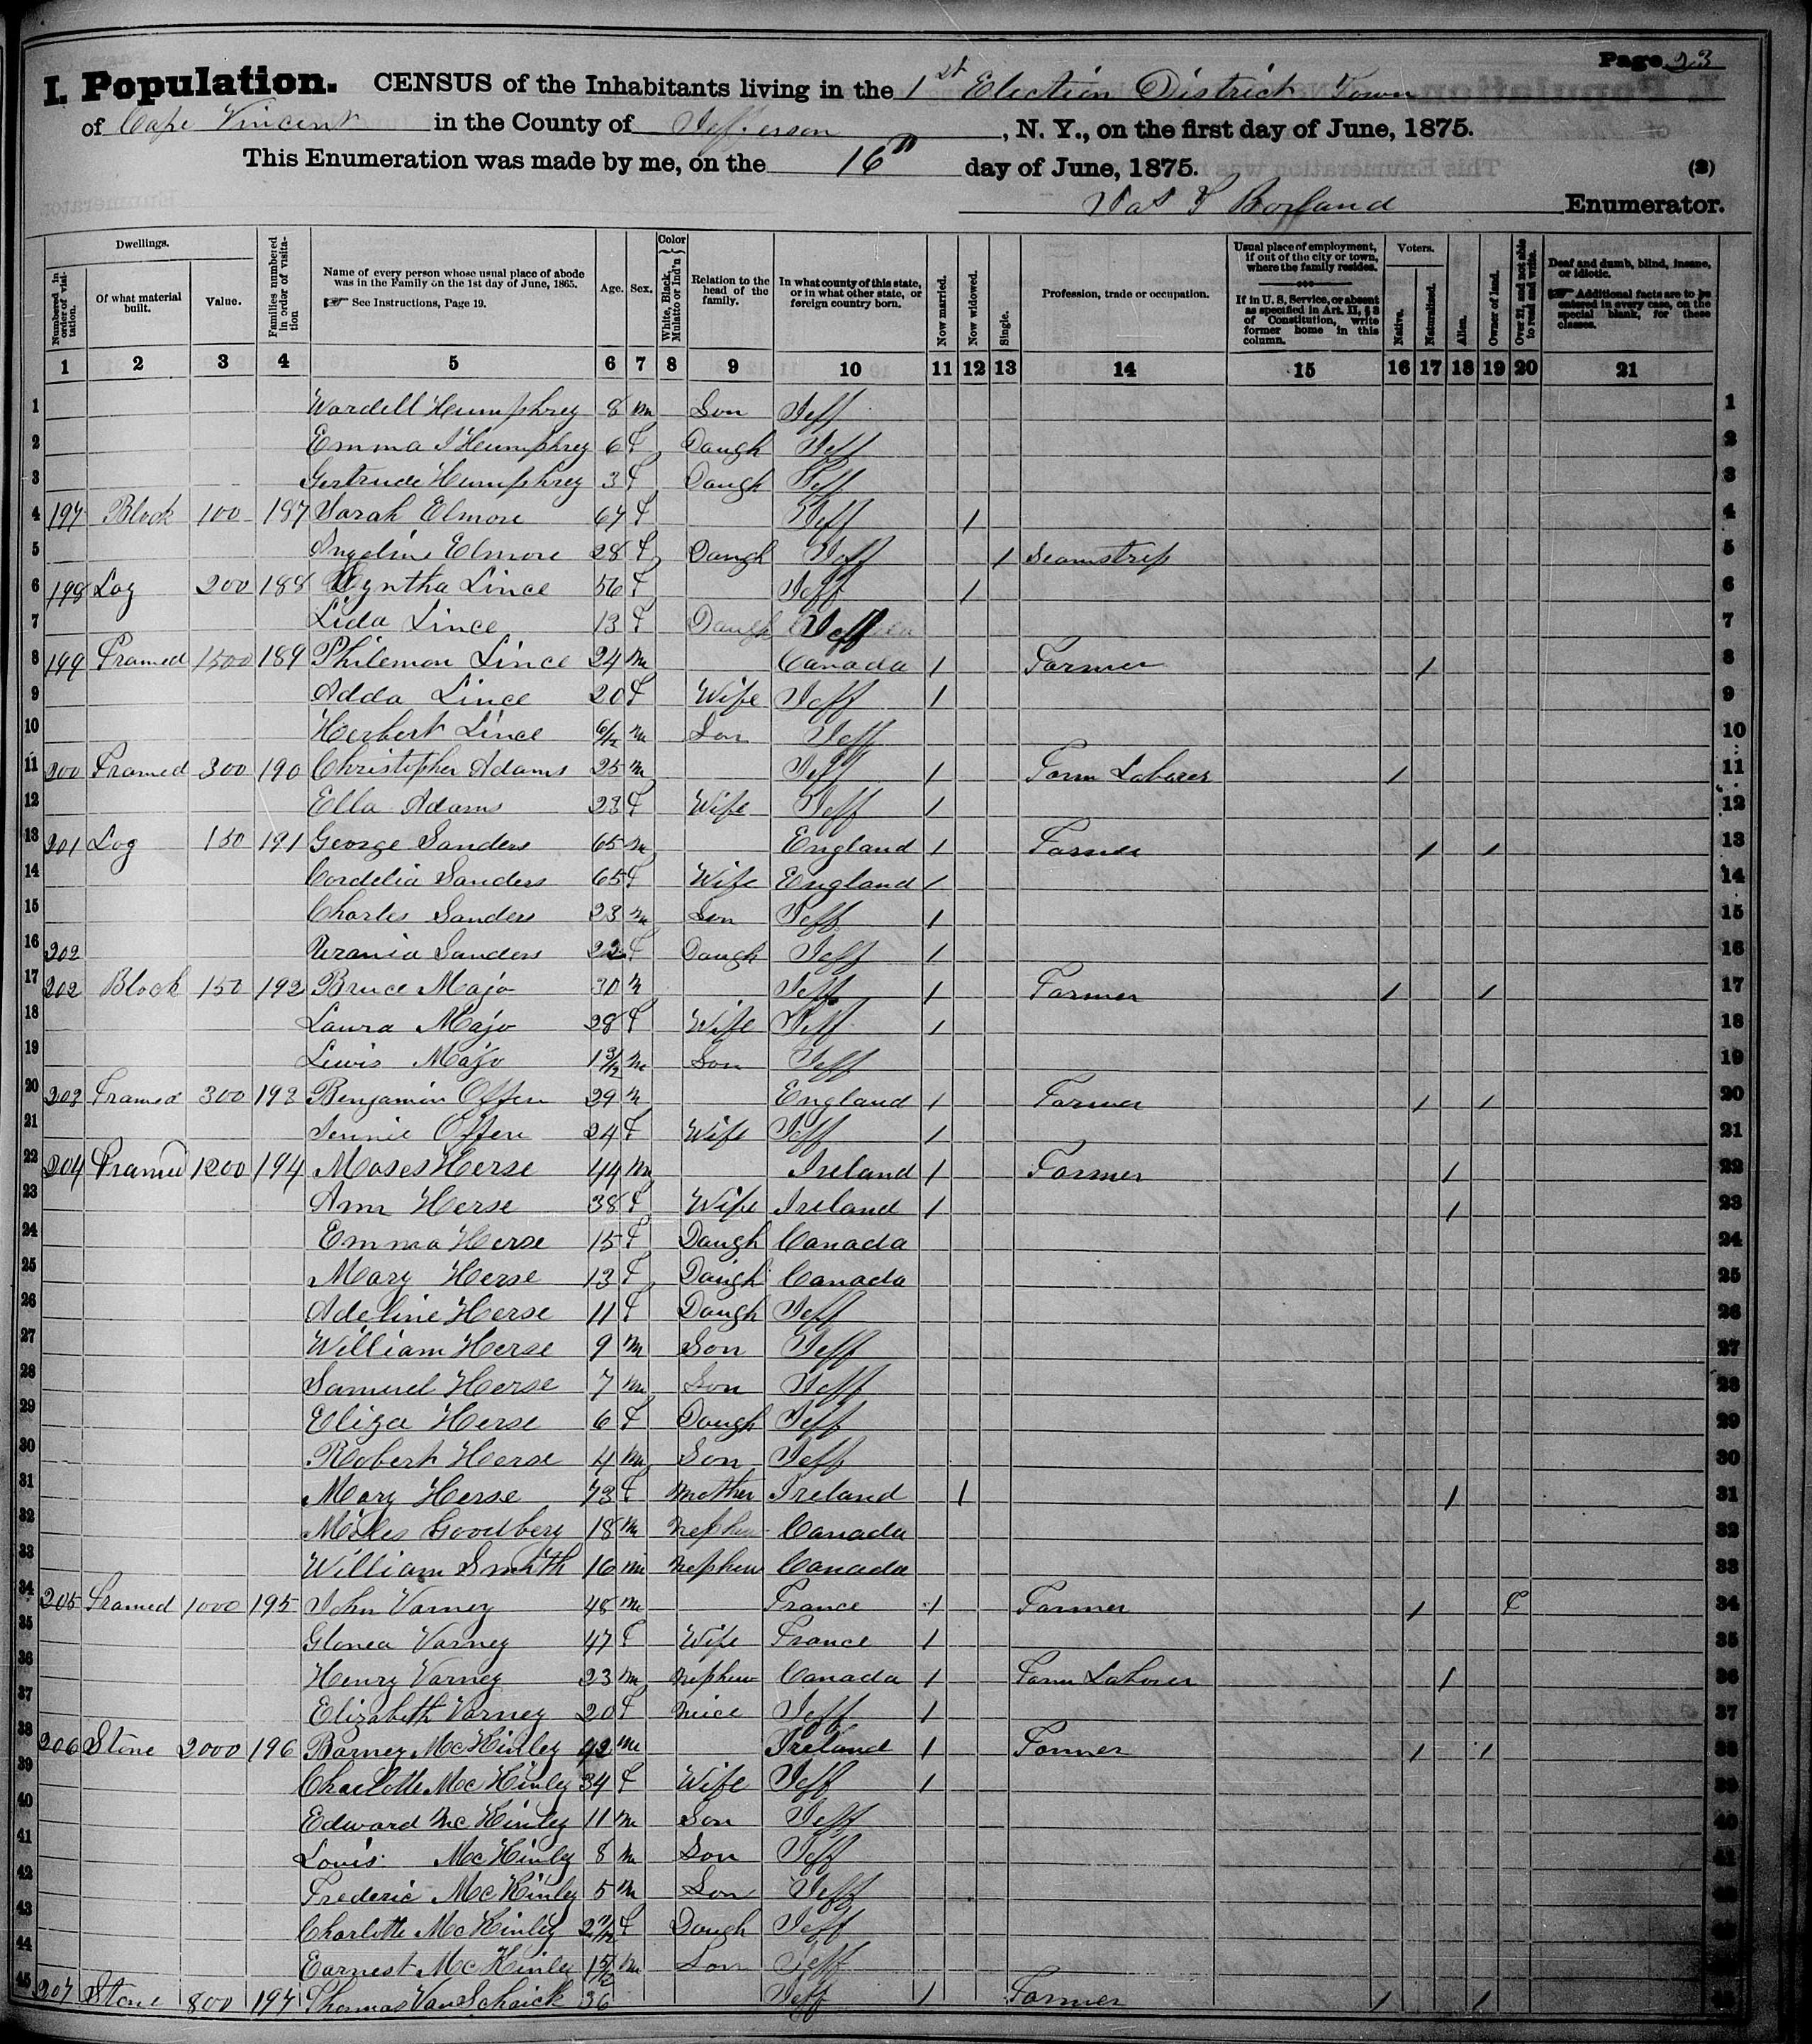 Page 23
I. Population. CENSUS of the Inhabitants living in the 1st Election District Town
of Cape Vincent in the County of Jefferson, N. Y., on the first day of June, 1875.
This Enumeration was made by me, on the 16th day of June, 1875. (2)
Borland Enumerator.
Dwellings. Color Voters.
Numbered in order of visitation. Of what material built. Value. Families numbered in order of visitation Name of every person whose usual place of abode was in the Family on the 1st day of June, 1865. See Instructions, Page 19. Age. Sex. White, Black, Mulatto or Ind'n Relation to the head of the family. In what county of this state, or in what other state, or foreign country born. Now married. Now widowed. Single. Profession, trade or occupation. Usual place of employment, if out of the city or town, where the family resides. If in U. S. Service, or absent as specified in Art. II, § 3 of Constitution, write former home in this column. Native. Naturalized. Alien. Owner of land. Over 21, and not able to read and write. Deaf and dumb, blind, insane, or idiotic. Additional facts are to be entered in every case, on the special blank, for these classes.
1 2 3 4 5 6 7 8 9 10 11 12 13 14 15 16 17 18 19 20 21
1 Wardell Humphrey 8 m Son Jeff 1
2 Emma J Humphrey 6 F Daugh Jeff 2
3 Gertrude Humphrey 3 F Daugh Jeff 3
4 197 Block 100 187 Sarah Elmore 67 F Jeff / 4
5 Angeline Elmore 28 F Daugh Jeff / Seamstress 5
6 198 Log 200 188 Cyntha Lince 56 F Jeff / 6
7 Lida Lince 13 F Daugh Jeff 7
8 199 Framed 1500 189 Philemon Lince 24 m Canada / Farmer / 8
9 Adda Lince 20 F Wife Jeff / 9
10 Herbert Lince 6/12 m Son Jeff 10
11 200 Framed 300 190 Christopher Adams 25 m Jeff / Farm Laborer / 11
12 Ella Adams 23 F Wife Jeff / 12
13 201 Log 150 191 George Sanders 65 m England / Farmer / / 13
14 Cordelia Sanders 65 F Wife England / 14
15 Charles Sanders 23 m Son Jeff / 15
16 202 Urania Sanders 22 F Daugh Jeff / 16
17 202 Block 150 192 Bruce Majo 30 m Jeff / Farmer / / 17
18 Laura Majo 28 F Wife Jeff / 18
19 Lewis Majo 1 3/12 m Son Jeff 19
20 203 Framed 300 193 Benjamin Offen 29 m England / Farmer / / 20
21 Jennie Offen 24 F Wife Jeff / 21
22 204 Framed 1200 194 Moses Herse 44 m Ireland / Farmer / 22
23 Ann Herse 38 F Wife Ireland / / 23
24 Emma Herse 15 F Daugh Canada 24
25 Mary Herse 13 F Daugh Canada 25
26 Adeline Herse 11 F Daugh Jeff 26
27 William Herse 9 m Son Jeff 27
28 Samuel Herse 7 m Son Jeff 28
29 Eliza Herse 6 F Daugh Jeff 29
30 Robert Herse 4 m Son Jeff 30
31 Mary Herse 73 F Mother Ireland / / 31
32 Miles Goodbery 18 m nephew Canada 32
33 William Smith 16 m nephew Canada 33
34 205 Framed 1000 195 John Varney 48 m France / Farmer / 34
35 Varney 47 F Wife France / 35
36 Henry Varney 23 m nephew Canada / Farm Laborer / 36
37 Elizabeth Varney 20 F niece Jeff / 37
38 206 Stone 2000 196 Barney McKinley 42 m Ireland / Farmer / / 38
39 Charlotte McKinley 34 F Wife Jeff / 39
40 Edward McKinley 11 m Son Jeff 40
41 Louis McKinley 8 m Son Jeff 41
42 Frederic McKinley 5 m Son Jeff
43 Charlotte McKinley F Daugh Jeff
44 Earnest McKinley m Son Jeff
45 207 Stone 800 197 Thomas VanSchaick 36 Jeff / Farmer / /